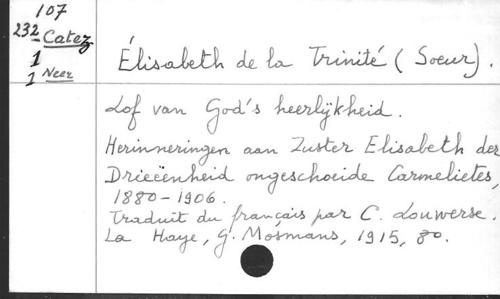 107
232 Catez
1
1 Neer
Élisabeth de la Trinité (Soeur).
Lof van God's heerlijkheid.
Herinneringen aan Zuster Elisabeth der
Drieëenheid ongeschoeide Carmelietes,
1880-1906.
Traduit du français par C. Louwerse.
La Haye, G. Mosmans, 1915, 8o.